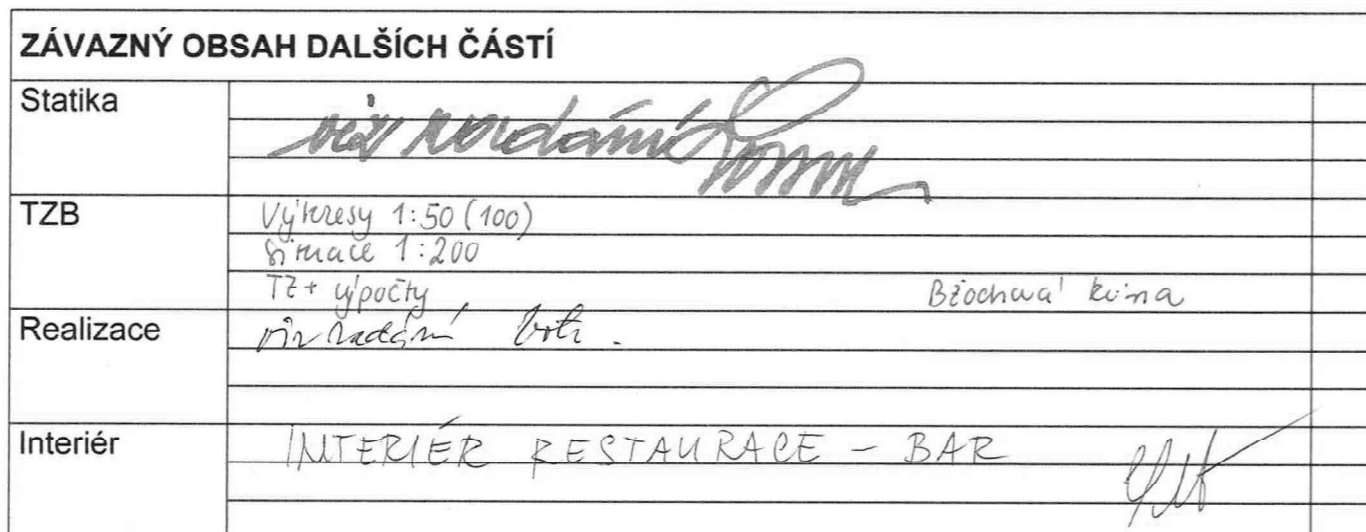 ZÁVAZNÝ OBSAH DALŠÍCH ČÁSTÍ
Statika
viz zadání
TZB
Výkresy 1:50 (100)
Situace 1:200
TZ + výpočty
Realizace
viz zadání
Interiér
INTERIÉR RESTAURACE – BAR